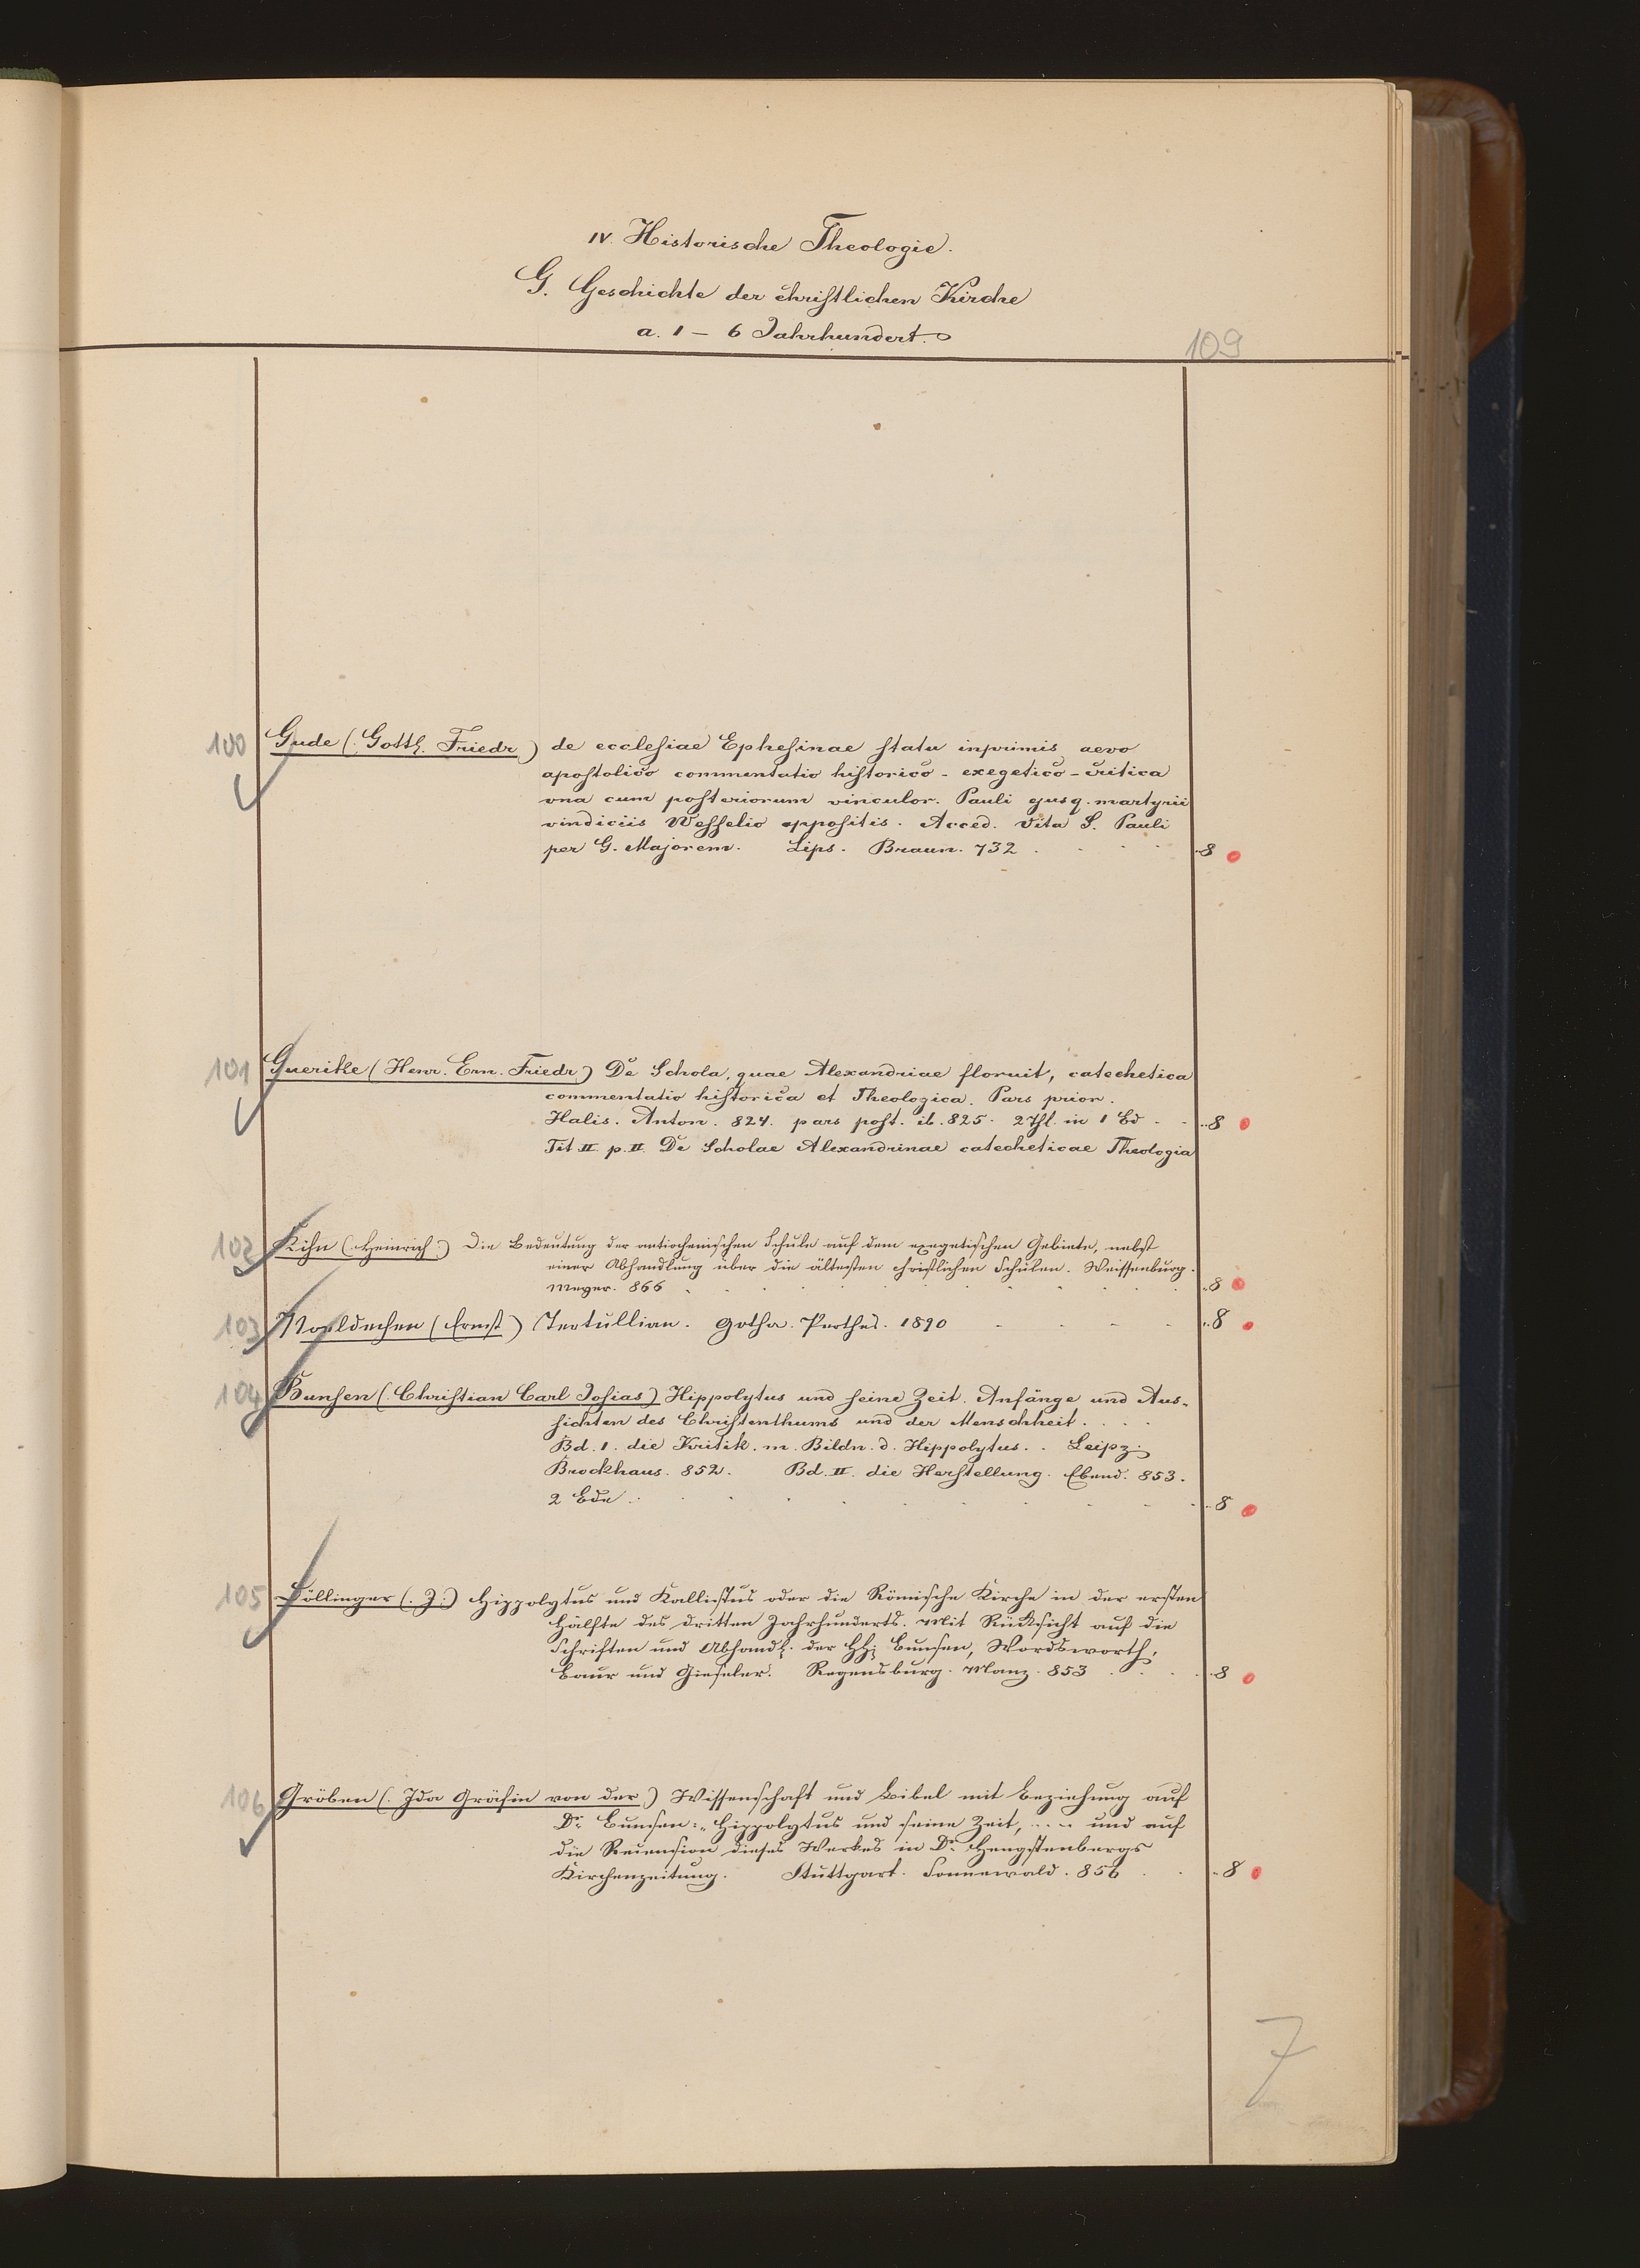 IV. Historische Theologie.
G. Geschichte der christlichen Kirche
a. 1 – 6 Jahrhundert.
109
100 Gude (. Gotth. Friedr) de ecclesiae Ephesinae statu inprimis aevo
apostolico commentatio historico - exegetico - critica
una cum posteriorum vinculor. Pauli ejusq. martyrii
vindiciis Wesselio oppositis. Acced. Vita S. Pauli
per G. Majorem. Lips. Braun. 732 . 8
101 Guerike (Henr. Ern. Friedr) De Schola, quae Alexandriae floruit, catechetica
commentatio historica et Theologica. Pars prior.
Halis. Anton. 824. pars post. ib. 825. 2 Thl. in 1 Bd . 8
Tit II. p. II. De Scholae Alexandrinae catecheticae Theologia
102 Kihn (.Heinrich.) Die Bedeutung der antiochenischen Schule auf dem exegetischen Gebiete, nebst
einer Abhandlung über die ältesten christlichen Schulen. Weissenburg.
Meyer. 866 . 8
103 Noeldechen (Ernst) Tertullian. Gotha. Perthes. 1890 . 8
104 Bunsen (. Christian Carl Josias) Hippolytus und seine Zeit. Anfänge und Aus-
sichten des Christenthums und der Menschheit. . . .
Bd. I. die Kritik. m. Bildn. d. Hippolytus. . Leipz.
Brockhaus. 852. Bd. II. die Herstellung. Ebend. 853.
2 Bde . 8
105 Döllinger (. J.) Hippolytus und Kallistus oder die Römische Kirche in der ersten
Hälfte des dritten Jahrhunderts. Mit Rücksicht auf die
Schriften und Abhandl. der HH. Bunsen, Wordsworth,
Baur und Gieseler. Regensburg. Manz. 853 . 8
106 Gröben (. Ida Gräfin von der) Wissenschaft und Bibel mit Beziehung auf
Dr. Bunsen: „Hippolytus und seine Zeit, . . . . und auf
die Recension dieses Werkes in Dr. Hengstenbergs
Kirchenzeitung. Stuttgart. Sonnewald. 856 . 8
7